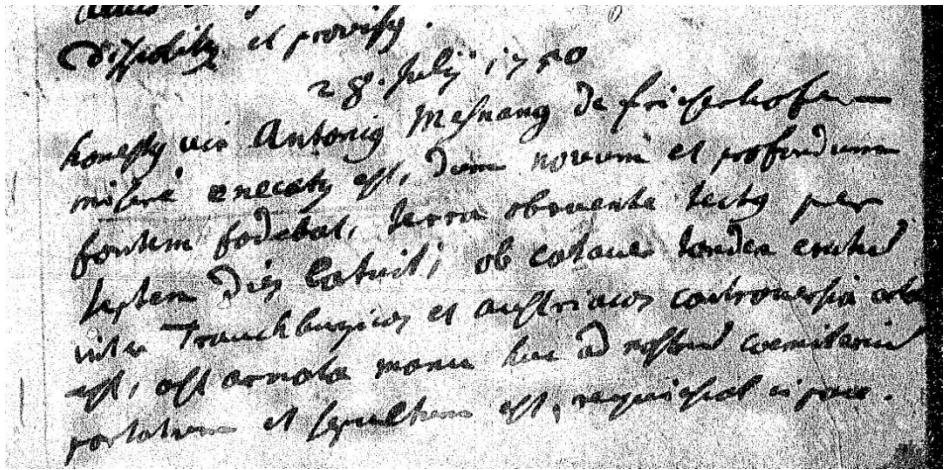 disposity et provisy.
28. July 1750
honesty vir Antoniy Mesnang de frieserhofen
miserè enecaty est, dum novum et profundum
fontem fodebat, terra obruente tecty per
septem dies latuit; ob cadaver tandem erutum
inter Trauchburgicos et austriacos controversia orta
est, ast armata manu huc ad nostrum coemiterium
portatum et sepultum est, requiescat i pace.